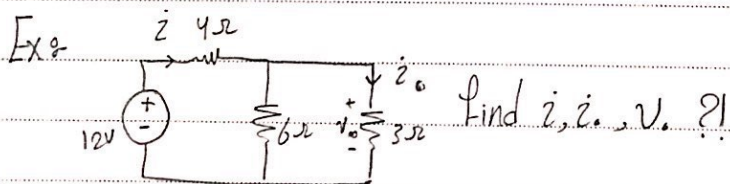 Ex:
i 4Ω
i₀
12V
+
-
6Ω
+
v₀
-
3Ω
find i, i₀, v₀ ?!